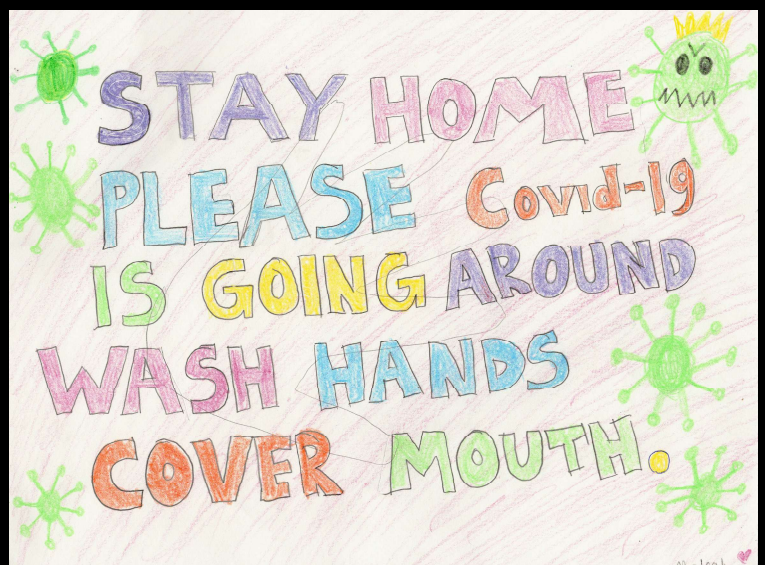 STAY HOME
PLEASE Covid-19
IS GOING AROUND
WASH HANDS
COVER MOUTH.